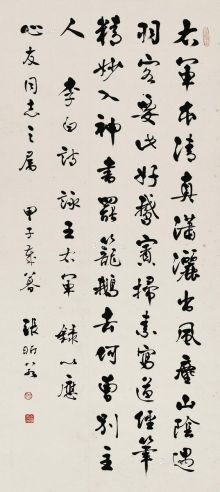 右軍本清真瀟灑出風塵山陰遇
羽客要此好鵝賓掃素寫道經筆
精妙入神書罷籠鵝去何曾別主
人 李白詩詠王右軍 錄以應
心友同志之屬 甲子春暮 張昕若